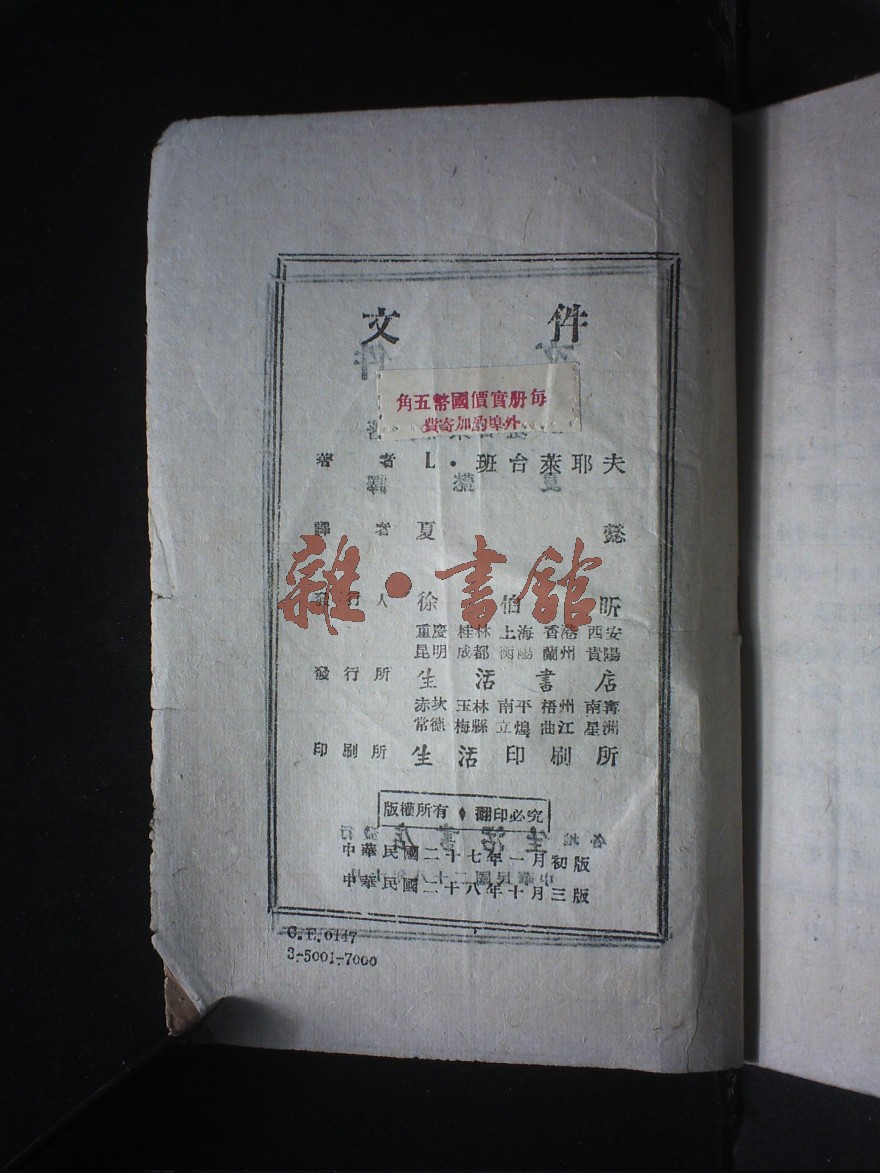 文件
每册實價國幣五角
外埠酌加寄費
著者 L・班台萊耶夫
譯者 夏懿
發行人 徐伯昕
重慶 桂林 上海 香港 西安
昆明 成都 衡陽 蘭州 貴陽
發行所 生活書店
赤坎 玉林 南平 梧州 南寗
常德 梅縣 立煌 曲江 星洲
印刷所 生活印刷所
版權所有♦翻印必究
中華民國二十七年一月初版
中華民國二十八年十月三版
C.E.0147
3-5001-7000
雜・書館